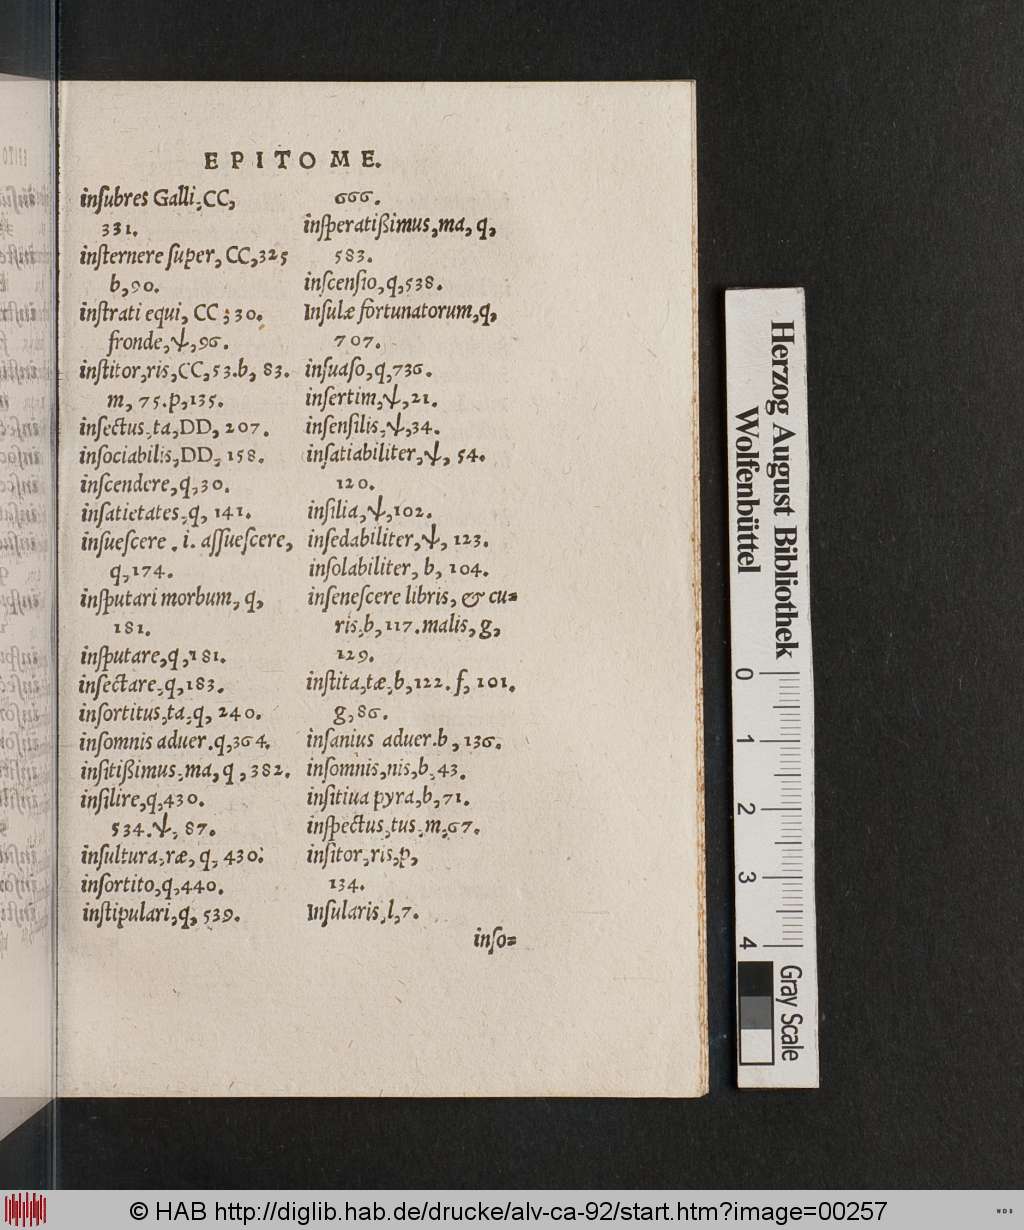 EPITOME.
inſubres Galli, CC,
331.
inſternere ſuper, CC,325
b,90.
inſtrati equi, CC ; 30.
fronde,ψ,96.
inſtitor,ris,CC,53.b, 83.
m, 75.p,135.
inſectus,ta,DD, 207.
inſociabilis,DD, 158.
inſcendere,q,30.
inſatietates,q, 141.
inſueſcere . i. aſſueſcere,
q,174.
inſputari morbum, q,
181.
inſputare,q,181.
inſectare,q,183.
inſortitus,ta,q, 240.
inſomnis aduer.q,364.
inſitißimus,ma, q , 382.
inſilire,q,430.
534.ψ, 87.
inſultura,ræ, q, 430.
inſortito,q,440.
inſtipulari,q, 539.
666.
inſperatißimus,ma, q,
583.
inſcenſio,q,538.
Inſulæ fortunatorum,q,
707.
inſuaſo,q,736.
inſertim,ψ,21.
inſenſilis,ψ,34.
inſatiabiliter,ψ, 54.
120.
inſilia,ψ,102.
inſedabiliter,ψ, 123.
inſolabiliter, b, 104.
inſeneſcere libris, & cu⸗
ris,b,117.malis, g,
129.
inſtita,tæ,b,122. f, 101.
g,86.
inſanius aduer.b , 136.
inſomnis,nis,b,43.
inſitiua pyra,b,71.
inſpectus,tus,m,67.
inſitor,ris,p,
134.
Inſularis,l,7.
inſo⸗
Herzog August Bibliothek
Wolfenbüttel
0 1 2 3 4
Gray Scale
© HAB http://diglib.hab.de/drucke/alv-ca-92/start.htm?image=00257